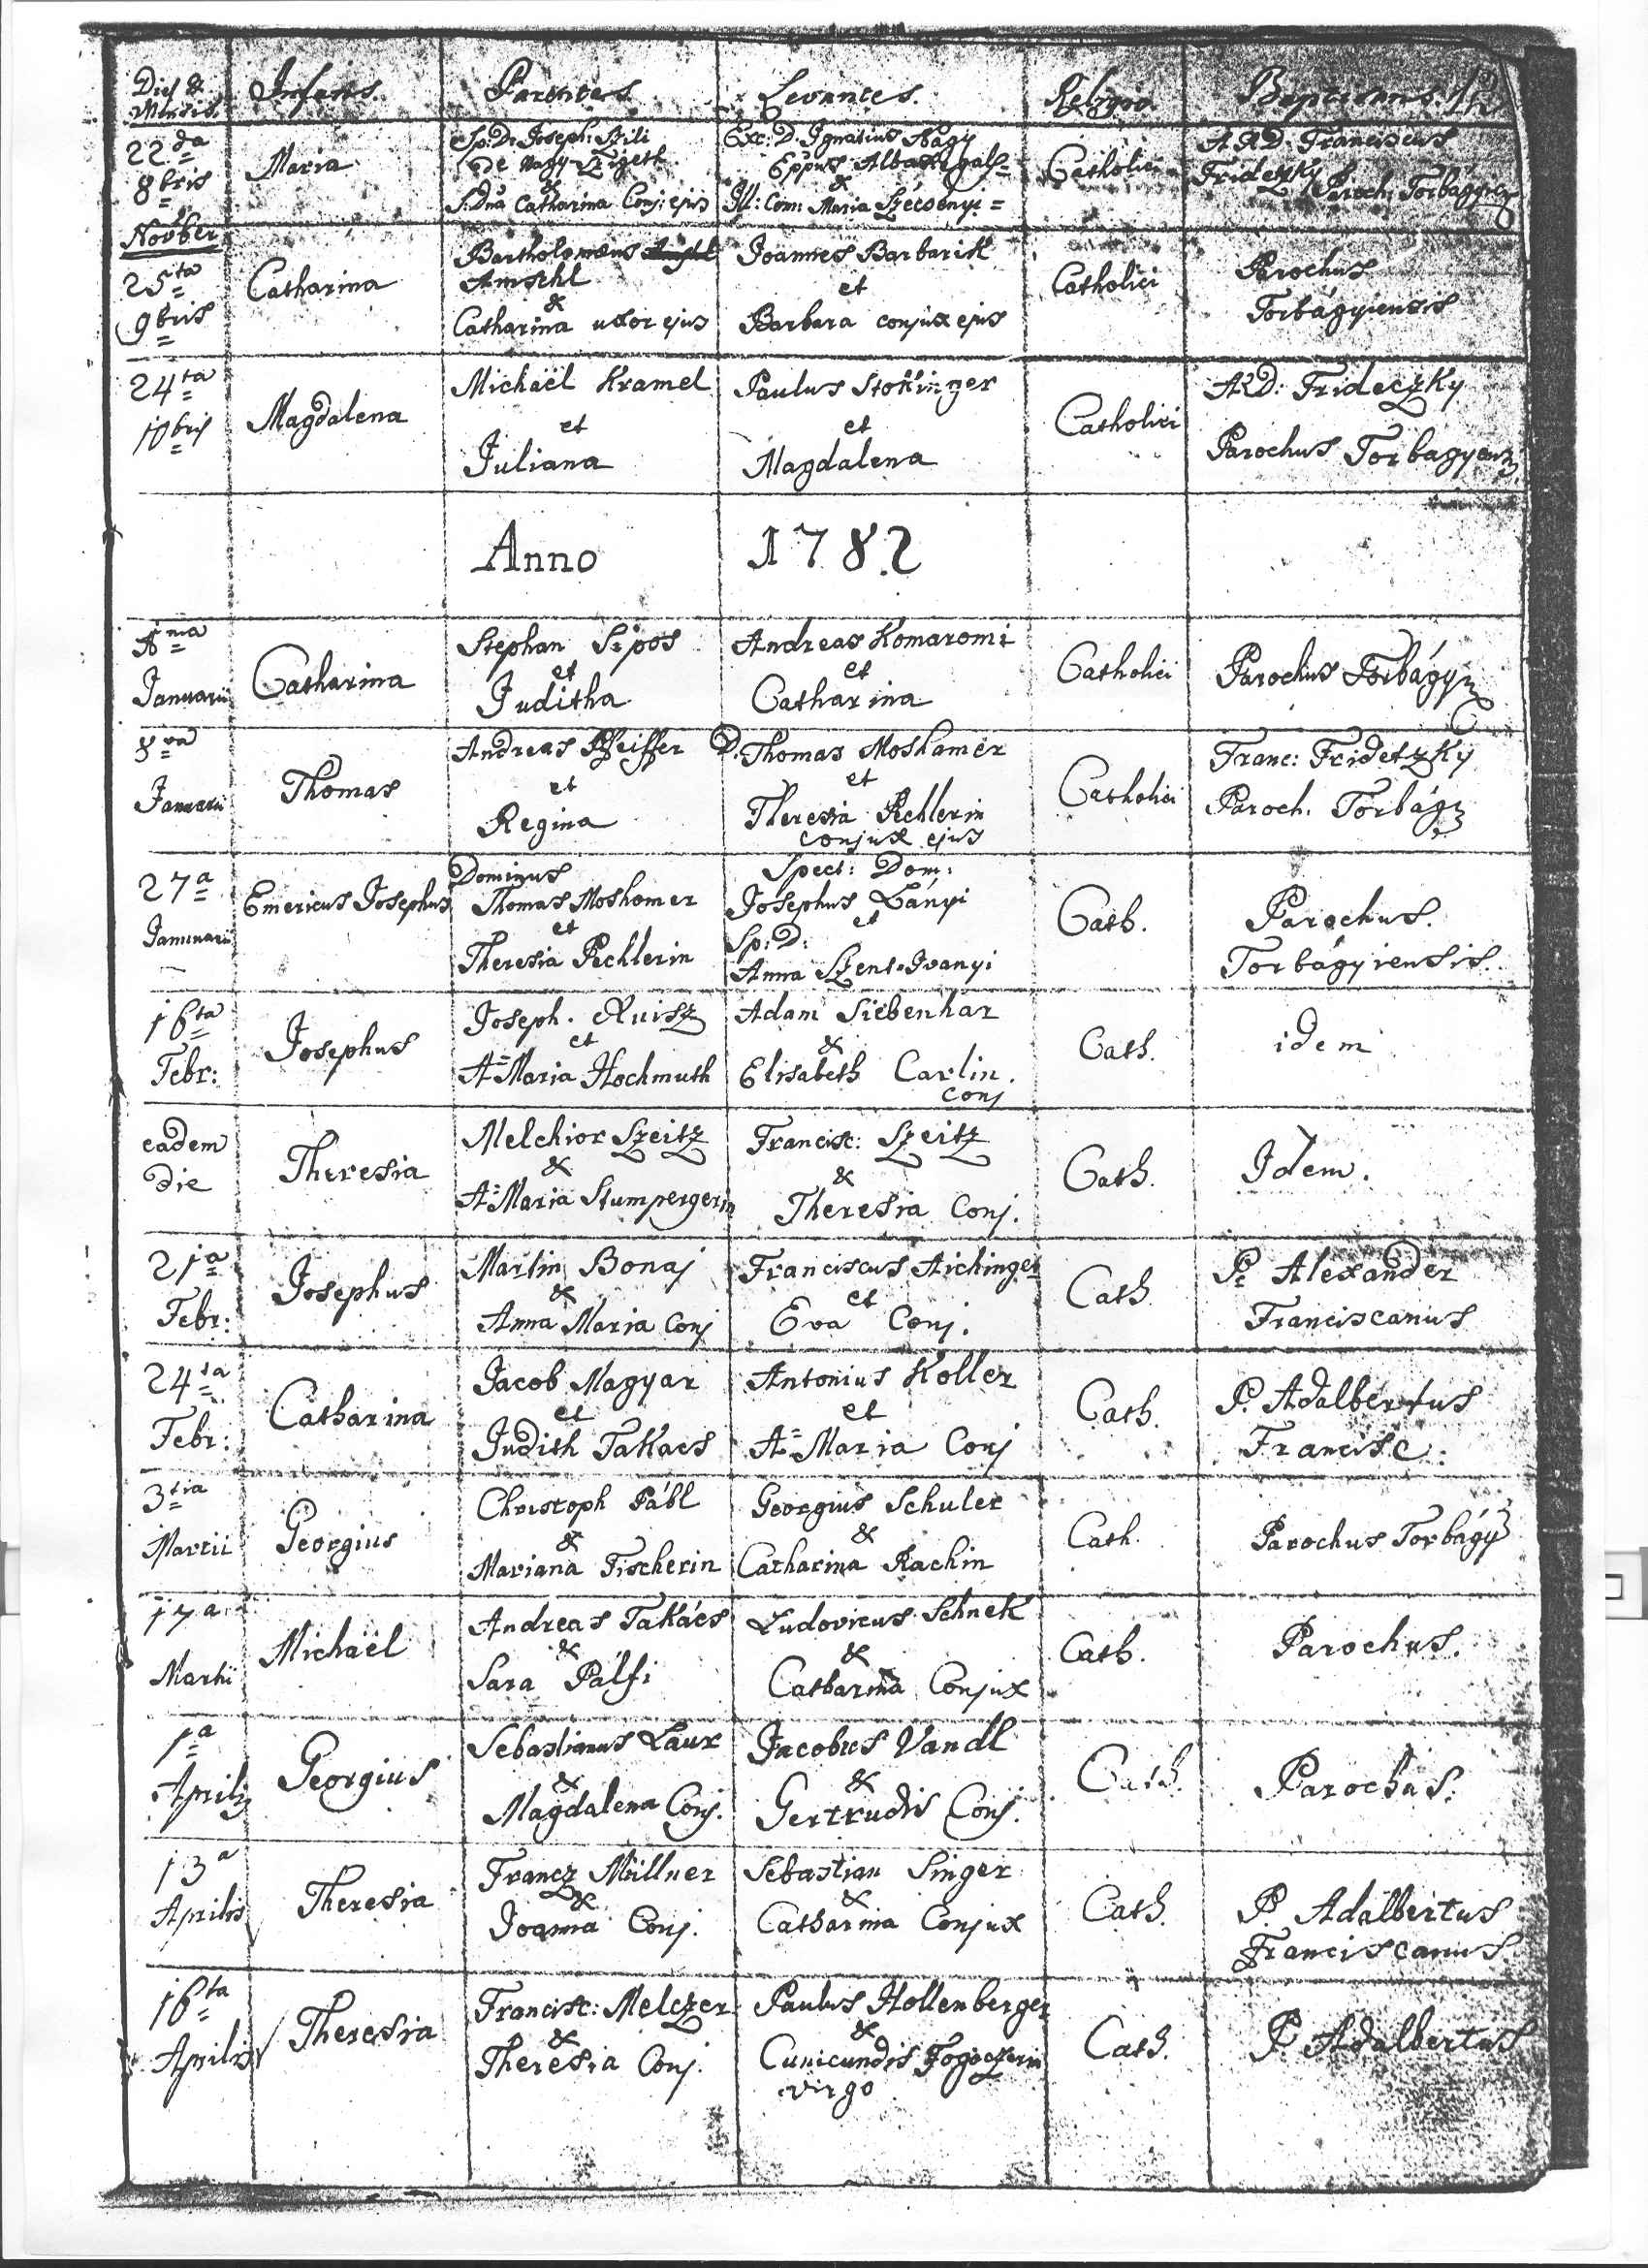 Dies &
Mensis.
Infans.
Parentes.
Levantes.
Religio
Baptisans.
22da
8bris
Maria
Sp: D: Joseph: Szili
de Nagy-Szigeth
&
S. Dna Catharina Conj: ejus
Exc: D: Ignatius Nagy
Eppus Alba Regals=
&
Ill: Com: Maria Szécsényi =
Catholici
A R D: Franciscus
Fridetzky
Paroch. Torbágyi
Novber
25ta
9bris
Catharina
Bartholomæus
Amschl
&
Catharina uxor ejus
Joannes Barbarik
et
Barbara conjux ejus
Catholici
Parochus
Torbágyiensis
24ta
10bris
Magdalena
Michaël Kramel
et
Juliana
Paulus Stokinger
et
Magdalena
Catholici
A R D: Frideczky
Parochus Torbagyens
Anno 1782
Januarii
Catharina
Stephan Sipos
et
Juditha
Andreas Komaromi
et
Catharina
Catholici
Parochus Torbágy
8va
Januarii
Thomas
Andreas Pfeiffer
et
Regina
D. Thomas Moshamer
et
Theresia Pechlerin
conjux ejus
Catholici
Franc: Fridetzky
Paroch. Torbág
27a
Januarii
Emericus Josephus
Dominus
Thomas Moshomer
et
Theresia Pechlerin
Spect: Dom:
Josephus Lányi
et
Sp: D:
Anna Szent-Ivanyi
Cath.
Parochus.
Torbágyiensis.
16ta
Febr:
Josephus
Joseph. Ruisz
et
A= Maria Hochmuth
Adam Siebenhar
&
Elisabeth Carlin.
conj
Cath.
idem
eadem
die
Theresia
Melchior Szeitz
&
A= Maria Stumpergerin
Francisc: Szeitz
&
Theresia Conj.
Cath.
Idem.
21a
Febr:
Josephus
Martin Bonaj
&
Anna Maria Conj
Franciscus Aichinger
et
Eva Conj.
Cath.
P. Alexander
Franciscanus
24ta
Febr:
Catharina
Jacob Magyar
et
Judith Takacs
Antonius Koller
et
A= Maria Conj
Cath.
P. Adalbertus
Francisc:
3tia
Martii
Georgius
Christoph Pábl
&
Mariana Fischerin
Georgius Schuler
&
Catharina Rachin
Cath.
Parochus Torbágy
17a
Martii
Michaël
Andreas Takács
&
Sara Palfi
Ludovicus Schnek
&
Catharina Conjux
Cath.
Parochus.
1a
Aprilis
Georgius
Sebastianus Laux
&
Magdalena Conj.
Jacobus Vandl
&
Gertrudis Conj.
Cath.
Parochus.
13a
Aprilis
Theresia
Francz Müllner
&
Joanna Conj.
Sebastian Singer
&
Catharina Conjux
Cath.
P. Adalbertus
Franciscanus
16ta
Aprilis
Theresia
Francisc: Melczer
&
Theresia Conj.
Paulus Hollenberger
&
Cunicundis
virgo
Cath.
P. Adalbertus